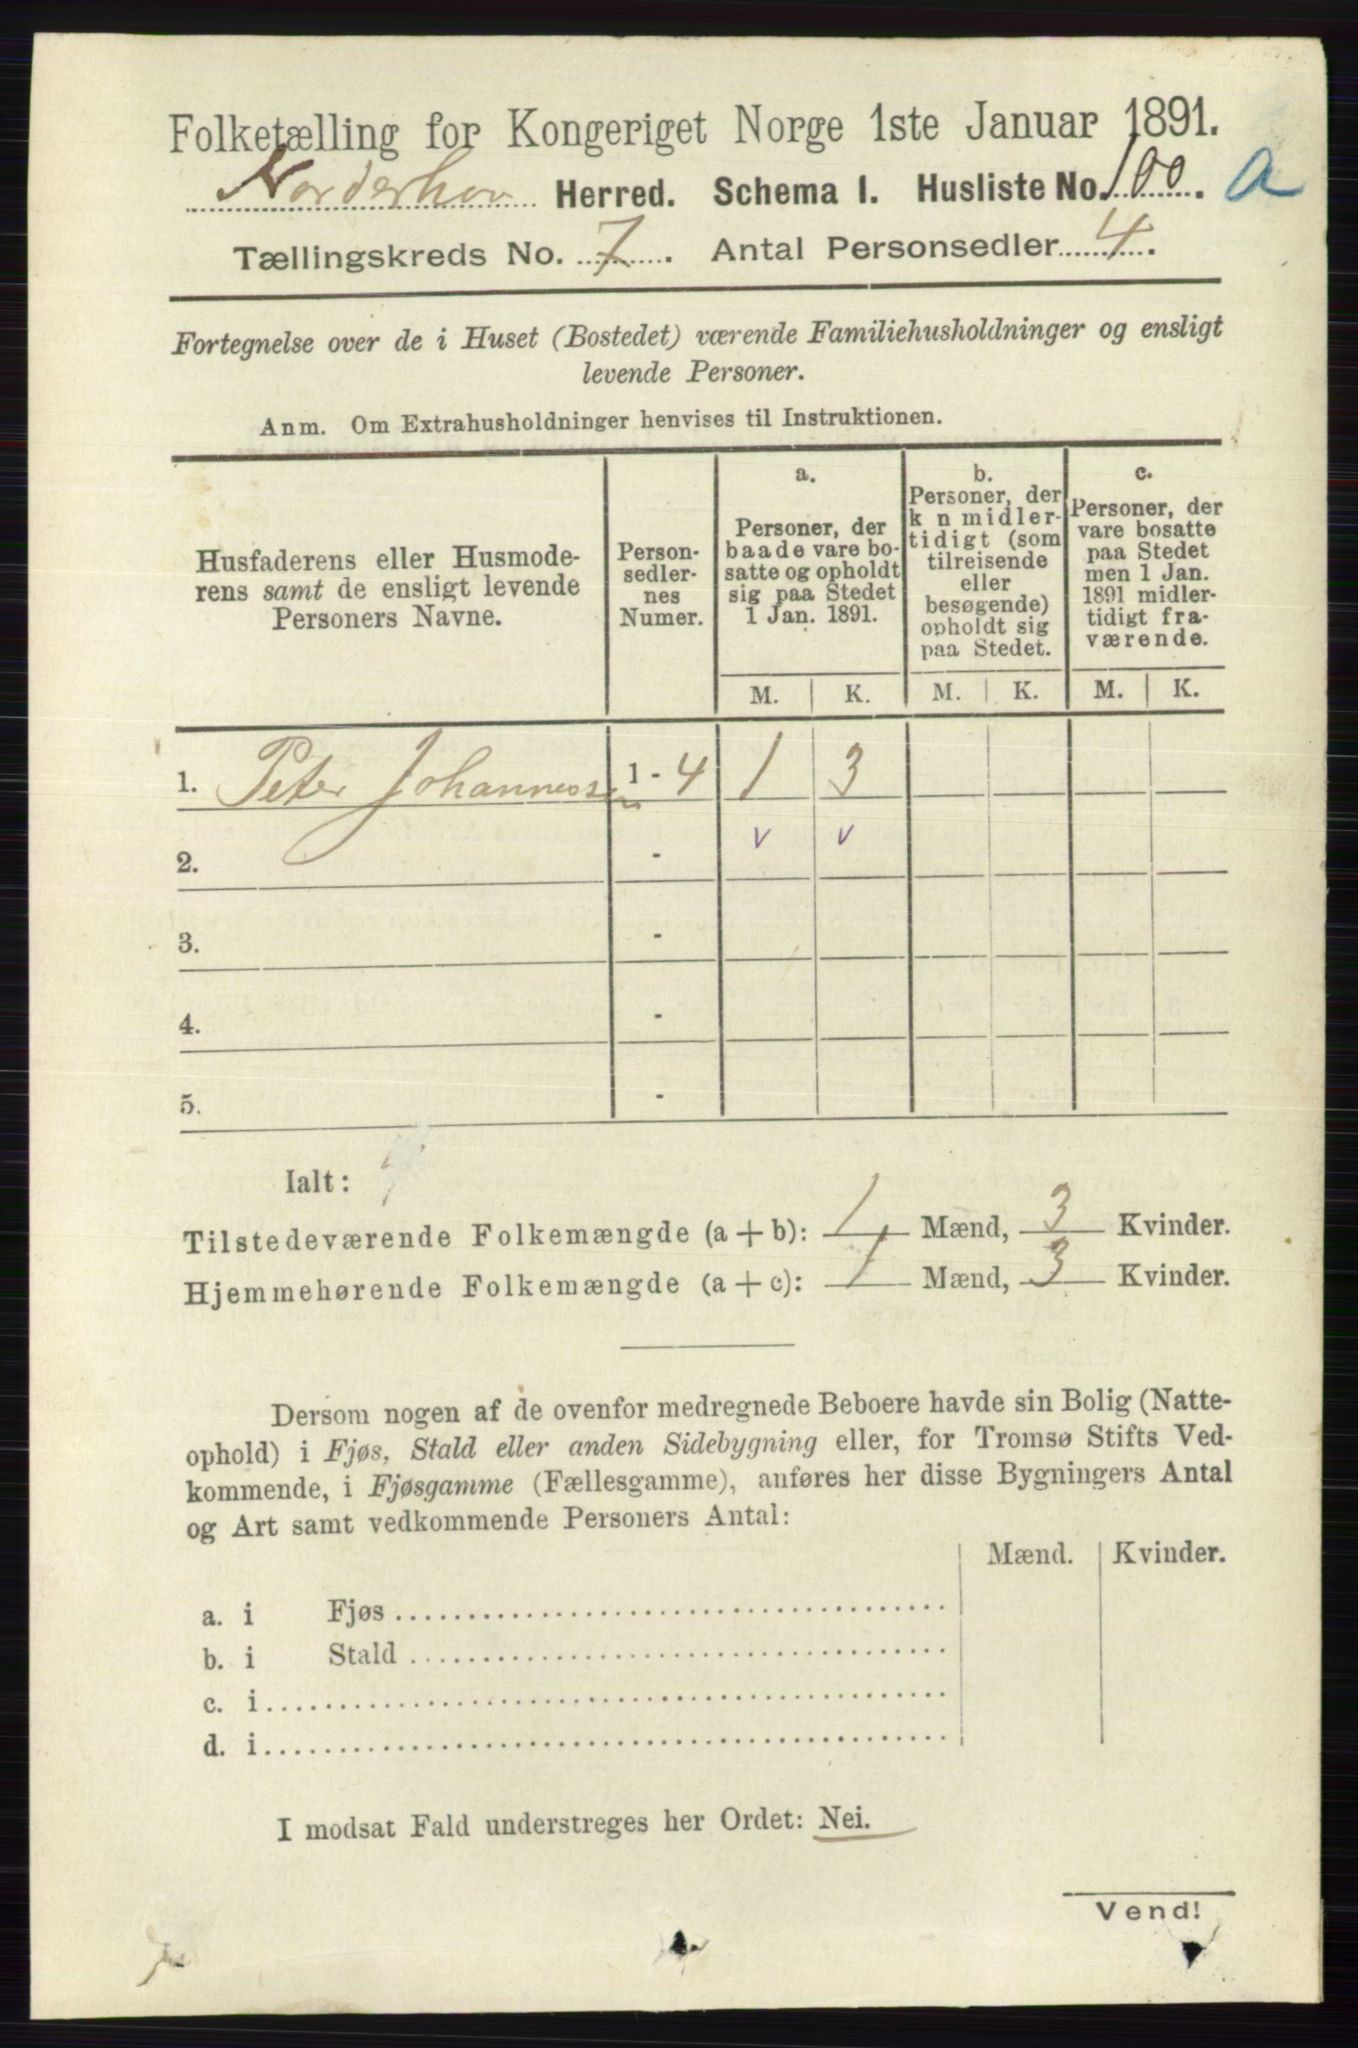 Folketælling for Kongeriget Norge 1ste Januar 1891.
Norderhov Herred. Schema I. Husliste No. 100. a
Tællingskreds No. 7. Antal Personsedler 4.
Fortegnelse over de i Huset (Bostedet) værende Familiehusholdninger og ensligt
levende Personer.
Anm. Om Extrahusholdninger henvises til Instruktionen.
Husfaderens eller Husmode-
rens samt de ensligt levende
Personers Navne.
Person-
sedler-
nes
Numer.
a.
Personer, der
baade vare bo-
satte og opholdt
sig paa Stedet
1 Jan. 1891.
b.
Personer, der
k n midler-
tidigt (som
tilreisende
eller
besøgende)
opholdt sig
paa Stedet.
c.
Personer, der
vare bosatte
paa Stedet
men 1 Jan.
1891 midler-
tidigt fra-
værende.
M. K. M. K. M. K.
1. Peter Johannessen 1 - 4 1 3
2. - v v
3. -
4. -
5. -
Ialt:
Tilstedeværende Folkemængde (a + b): 1 Mænd, 3 Kvinder.
Hjemmehørende Folkemængde (a + c): 1 Mænd, 3 Kvinder.
Dersom nogen af de ovenfor medregnede Beboere havde sin Bolig (Natte-
ophold) i Fjøs, Stald eller anden Sidebygning eller, for Tromsø Stifts Ved-
kommende, i Fjøsgamme (Fællesgamme), anføres her disse Bygningers Antal
og Art samt vedkommende Personers Antal:
Mænd. Kvinder.
a. i Fjøs
b. i Stald
c. i
d. i
I modsat Fald understreges her Ordet: Nei.
Vend!